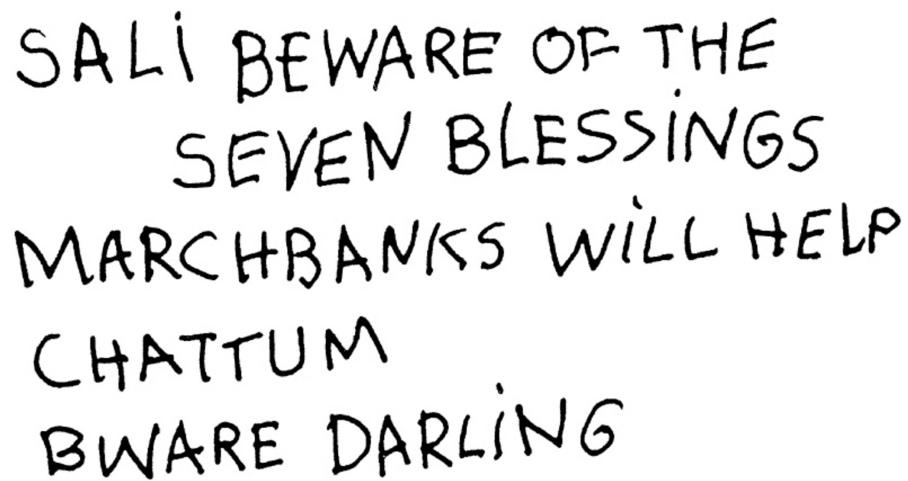 SALi BEWARE OF THE
SEVEN BLESSiNGS
MARCHBANKS WiLL HELP
CHATTUM
BWARE DARLiNG